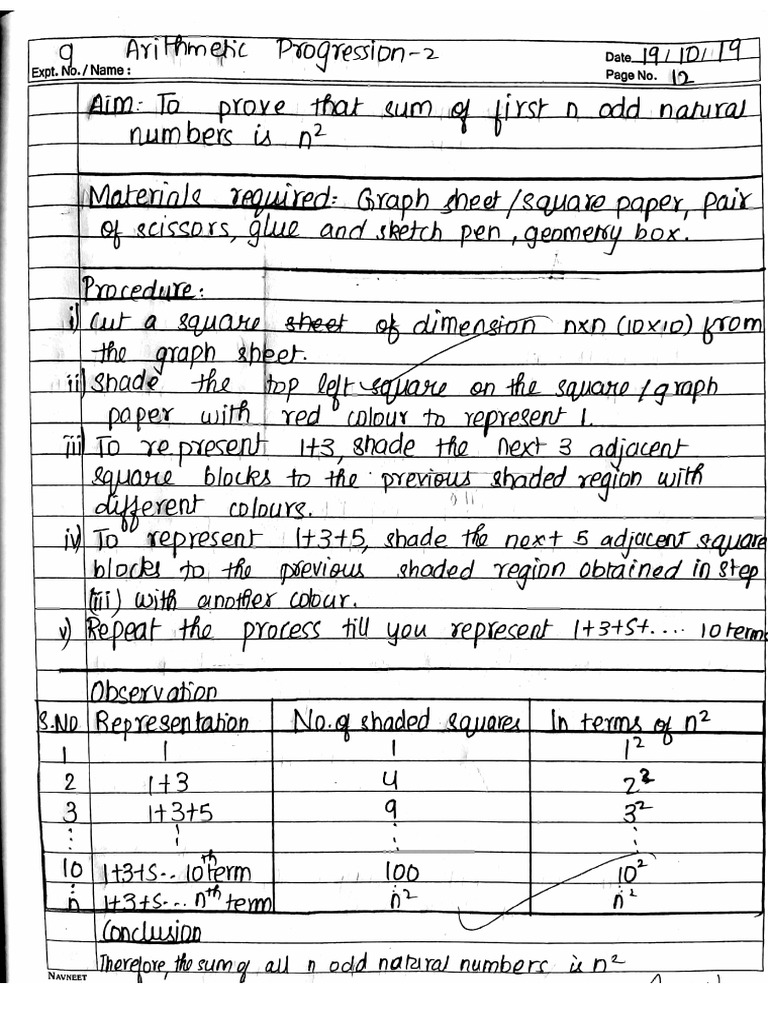 9 Arithmetic Progression-2 Date 19/10/19
Expt. No./Name: Page No. 12
Aim: To prove that sum of first n odd natural
numbers is n²
Materials required: Graph sheet/square paper, pair
of scissors, glue and sketch pen, geometry box.
Procedure:
i) Cut a square sheet of dimension n×n (10×10) from
the graph sheet.
ii) Shade the top left square on the square/graph
paper with red colour to represent 1.
iii) To represent 1+3, shade the next 3 adjacent
square blocks to the previous shaded region with
different colours.
iv) To represent 1+3+5, shade the next 5 adjacent square
blocks to the previous shaded region obtained in step
(iii) with another colour.
v) Repeat the process till you represent 1+3+5+.... 10 terms
Observation
S.NO Representation No. of shaded squares In terms of n²
1 1 1 1²
2 1+3 4 2²
3 1+3+5 9 3²
10 1+3+5... 10th term 100 10²
n 1+3+5.... nth term n² n²
Conclusion
Therefore, the sum of all n odd natural numbers is n²
NAVNEET